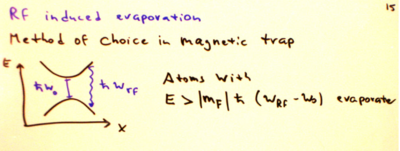 15
RF induced evaporation
Method of choice in magnetic trap
E
ħω₀
ħ ω_rf
x
Atoms with
E > |m_F| ħ (ω_RF - ω₀) evaporate